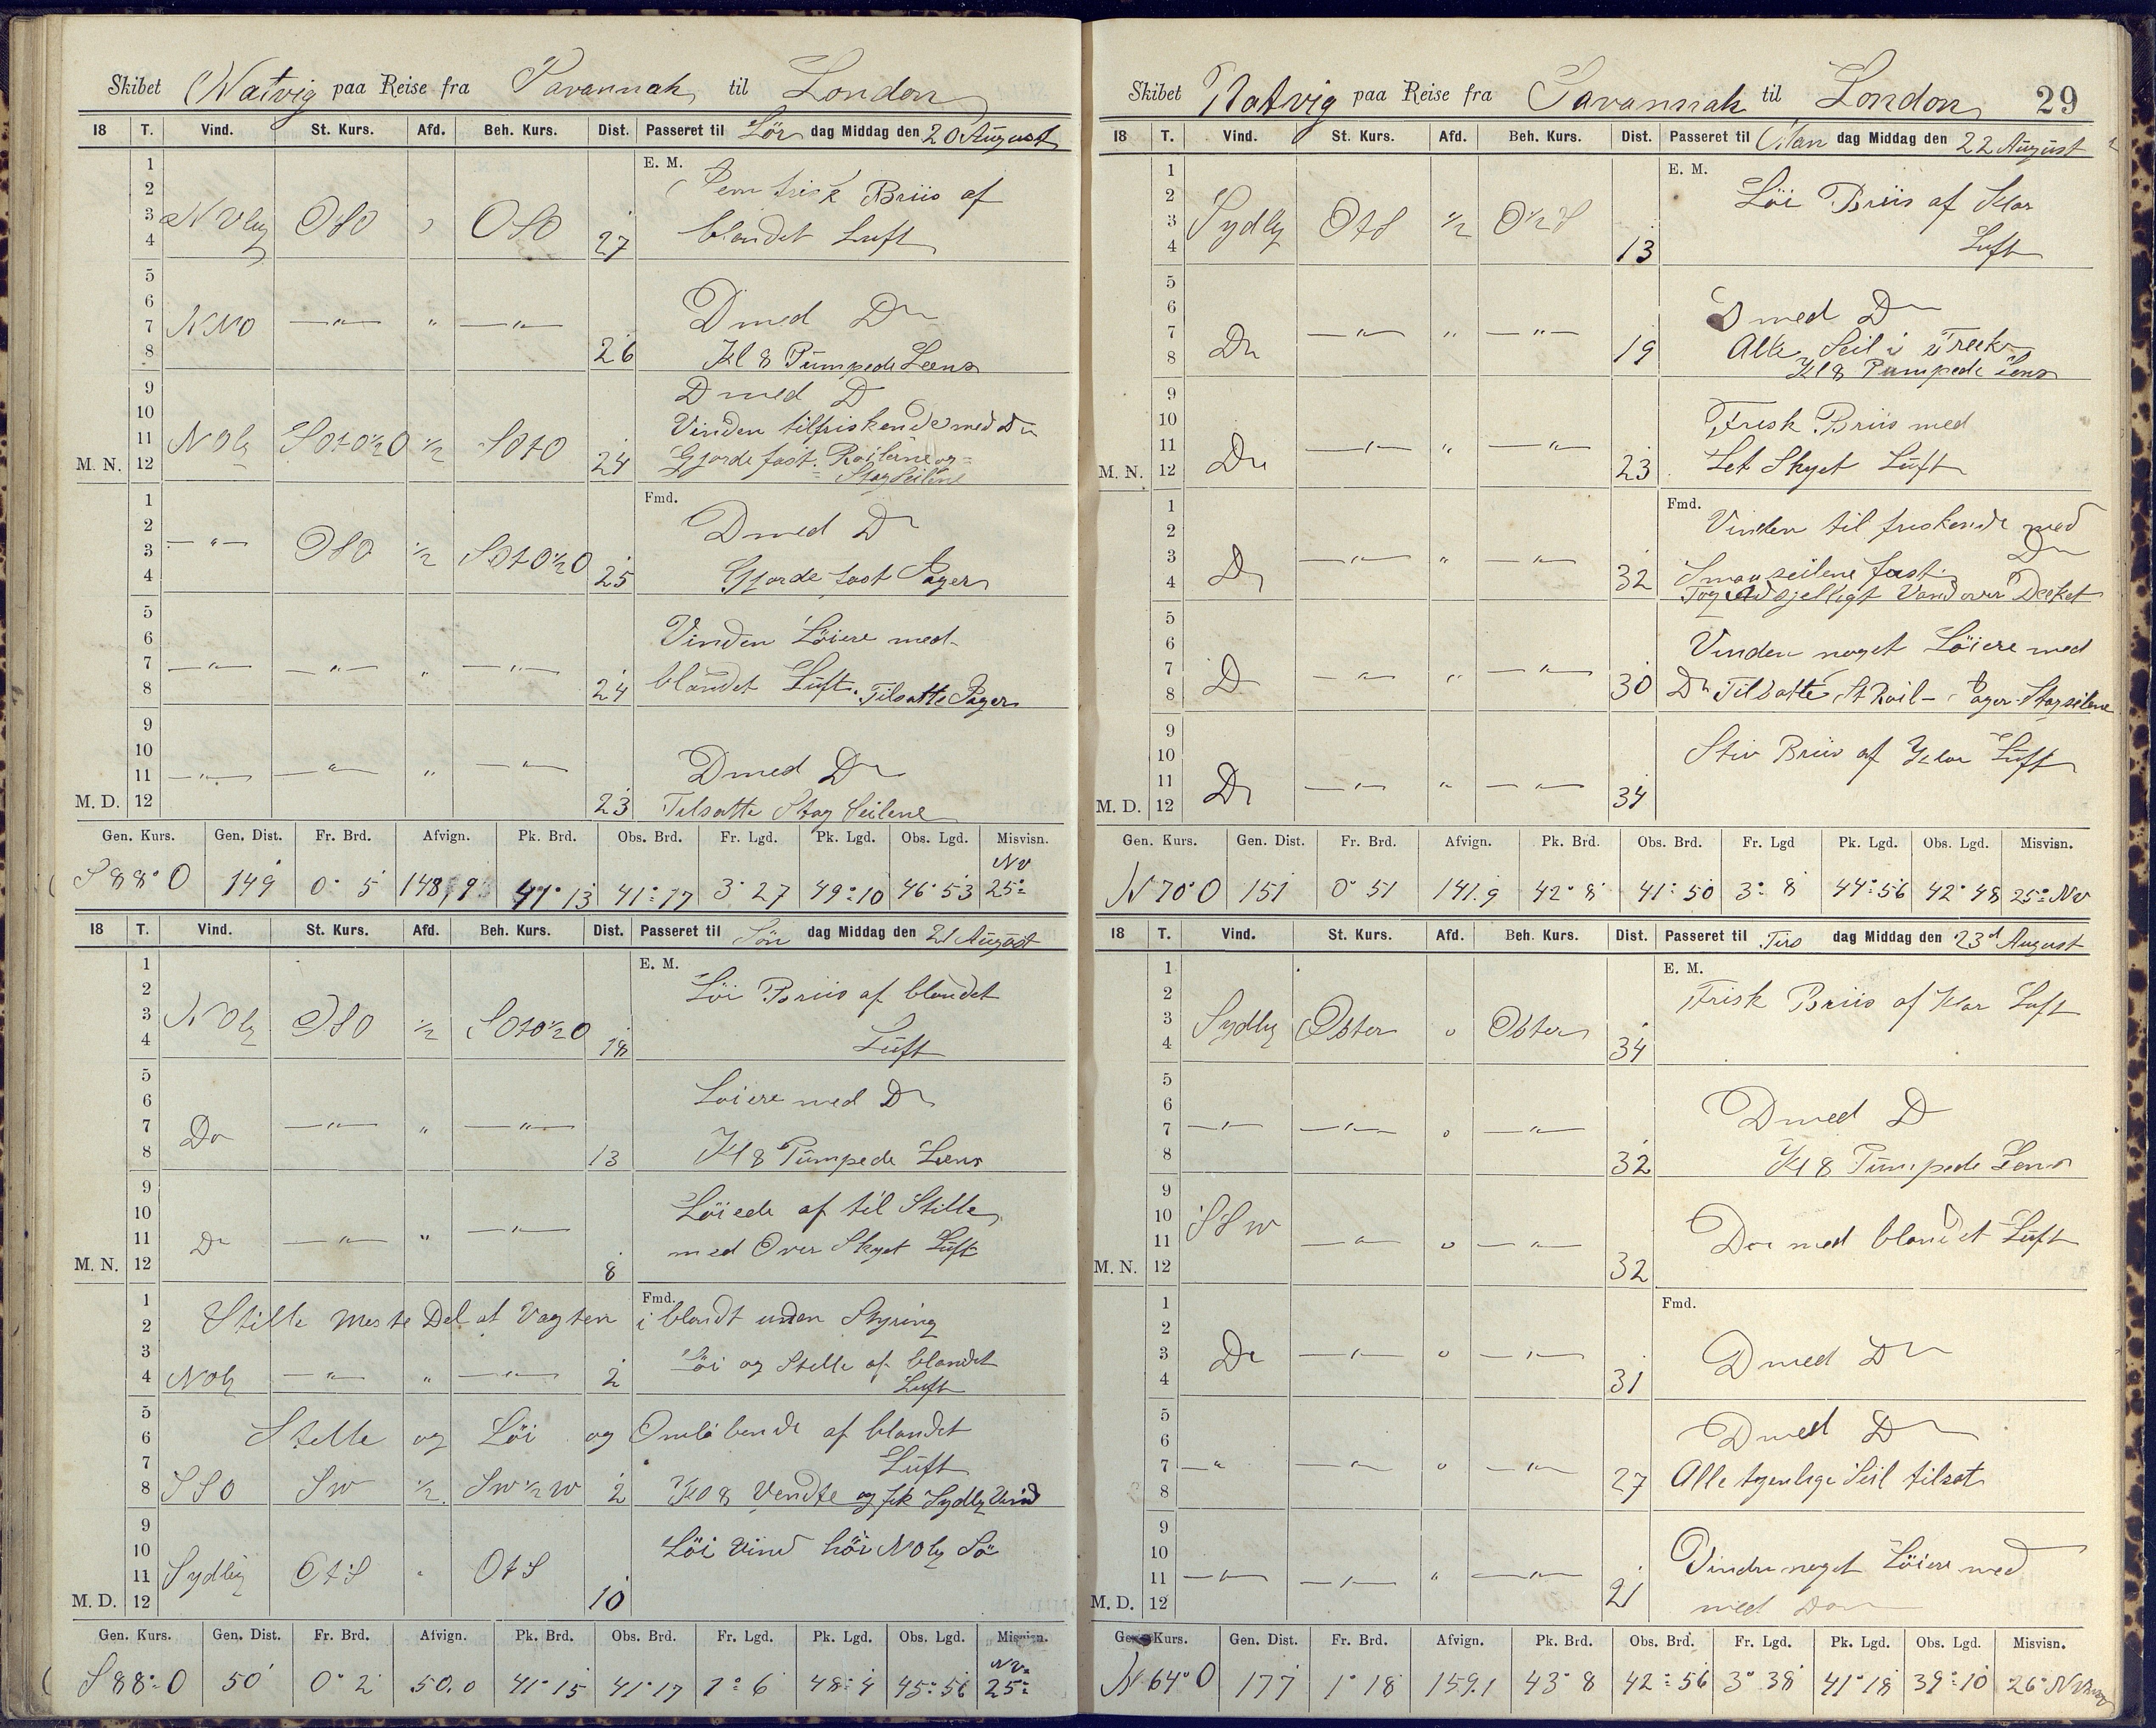 Skibet Natvig paa Reise fra Savannah til London
18 T. Vind. St. Kurs. Afd. Beh. Kurs. Dist. Passeret til Lör dag Middag den 20 August
E. M.
1
2 frisk Briis af
3 NVlig OSO " OSO 27 blandet Luft
4
5
6 D med Do
7 NNO —"— " —"—
8 26 Kl 8 Pumpede Leens
9 D med D
10 Vinden tilfriskende med Do
11 NOlig SOtO½O ½ SOtO 24 Gjorde fast Roilene og
M. N. 12 Stag Seilene
Fmd.
1
2 D med Do
3 —"— OSO ½ SOtO½O
4 25 Gjorde fast Bager
5
6 Vinden Löiere med
7 —"— —"— " —"—
8 24 blandet Luft. Tilsatte Bager
9
10 D med Do
11 —"— —"— " —"—
M. D. 12 23 Tilsatte Stag Seilene
Gen. Kurs. Gen. Dist. Fr. Brd. Afvign. Pk. Brd. Obs. Brd. Fr. Lgd. Pk. Lgd. Obs. Lgd. Misvisn.
S 88° O 149 0° 5 148,9 41° 13 41° 17 3° 27 49° 10 46° 53 NV 25°
18 T. Vind. St. Kurs. Afd. Beh. Kurs. Dist. Passeret til Sön dag Middag den 21 August
E. M.
1
2 Löi Briis af blandet
3 NOlig OSO ½ SOtO½O
4 18 Luft
5
6 Löiere med Do
7 Do —"— " —"—
8 13 Kl 8 Pumpede Leens
9
10 Löiede af til Stille
11 Do —"— " —"— med Over Skyet Luft
M. N. 12 8
Fmd.
1
2 Stille meste Del af Vagten iblandt uden Styring
3 Löi og Stille af blandet
4 NOlig —"— " —"— 2 Luft
5
6 Stille og Löi og Omlöbende af blandet
7 Luft
8 SSO SW ½ SW½W 2 Kl 8 Vendte og fik Sydlig Vind
9
10 Löi Vind höi NOlig Sö
11 Sydlig OtS " OtS
M. D. 12 10
Gen. Kurs. Gen. Dist. Fr. Brd. Afvign. Pk. Brd. Obs. Brd. Fr. Lgd. Pk. Lgd. Obs. Lgd. Misvisn.
S 88° O 50 0° 2 50.0 41° 15 41° 17 1° 6 48° 4 45° 56 NV 25°
Skibet Natvig paa Reise fra Savannah til London 29
18 T. Vind. St. Kurs. Afd. Beh. Kurs. Dist. Passeret til Man dag Middag den 22 August
E. M.
1
2 Löi Briis af Klar
3 Sydlig OtS ½ O½S
4 13 Luft
5
6 D med Do
7 —"— " —"— Alle Seil i Træk
8 Do 19 Kl 8 Pumpede lens
9
10 Frisk Briis med
11 —"— " —"—
M. N. 12 Do 23 Let Skyet Luft
Fmd.
1
2 Vinden til friskende med
3 —"— " —"— Do
4 Do 32 Smaaseilene fast
Tog Vand over Dækket
5
6 Vinden noget Löiere med
7 D —"— " —"—
8 30 Do Tilsatte St Roil Bager Stagseilene
9
10 Stiv Briis af Klar Luft
11 Do —"— " —"—
M. D. 12 34
Gen. Kurs. Gen. Dist. Fr. Brd. Afvign. Pk. Brd. Obs. Brd. Fr. Lgd Pk. Lgd. Obs. Lgd. Misvisn.
N 70° O 151 0° 51 141.9 42° 8 41° 50 3° 8 44° 56 42° 48 25° NV
18 T. Vind. St. Kurs. Afd. Beh. Kurs. Dist. Passeret til Tirs dag Middag den 23d August
E. M.
1
2 Frisk Briis af Klar Luft
3 Sydlig Öster o Öster
4 34
5
6 D med D
7 —"— —"— o —"—
8 32 Kl 8 Pumpede Lens
9
10 SSW Do med blandet Luft
11 —"— o —"—
M. N. 12 32
Fmd.
1
2
3 Do —"— o —"— D med Do
4 31
5
6 D med Do
7 —"— —"— o —"—
8 27 Alle tjenlige Seil tilsat
9
10 Vinden noget Löiere med
11 —"— —"— " —"—
M. D. 12 21 med Do
Gen. Kurs. Gen. Dist. Fr. Brd. Afvign. Pk. Brd. Obs. Brd. Fr. Lgd. Pk. Lgd. Obs. Lgd. Misvisn.
N 64° O 177 1° 18 159.1 43° 8 42° 56 3° 38 41° 18 39° 10 26° NV